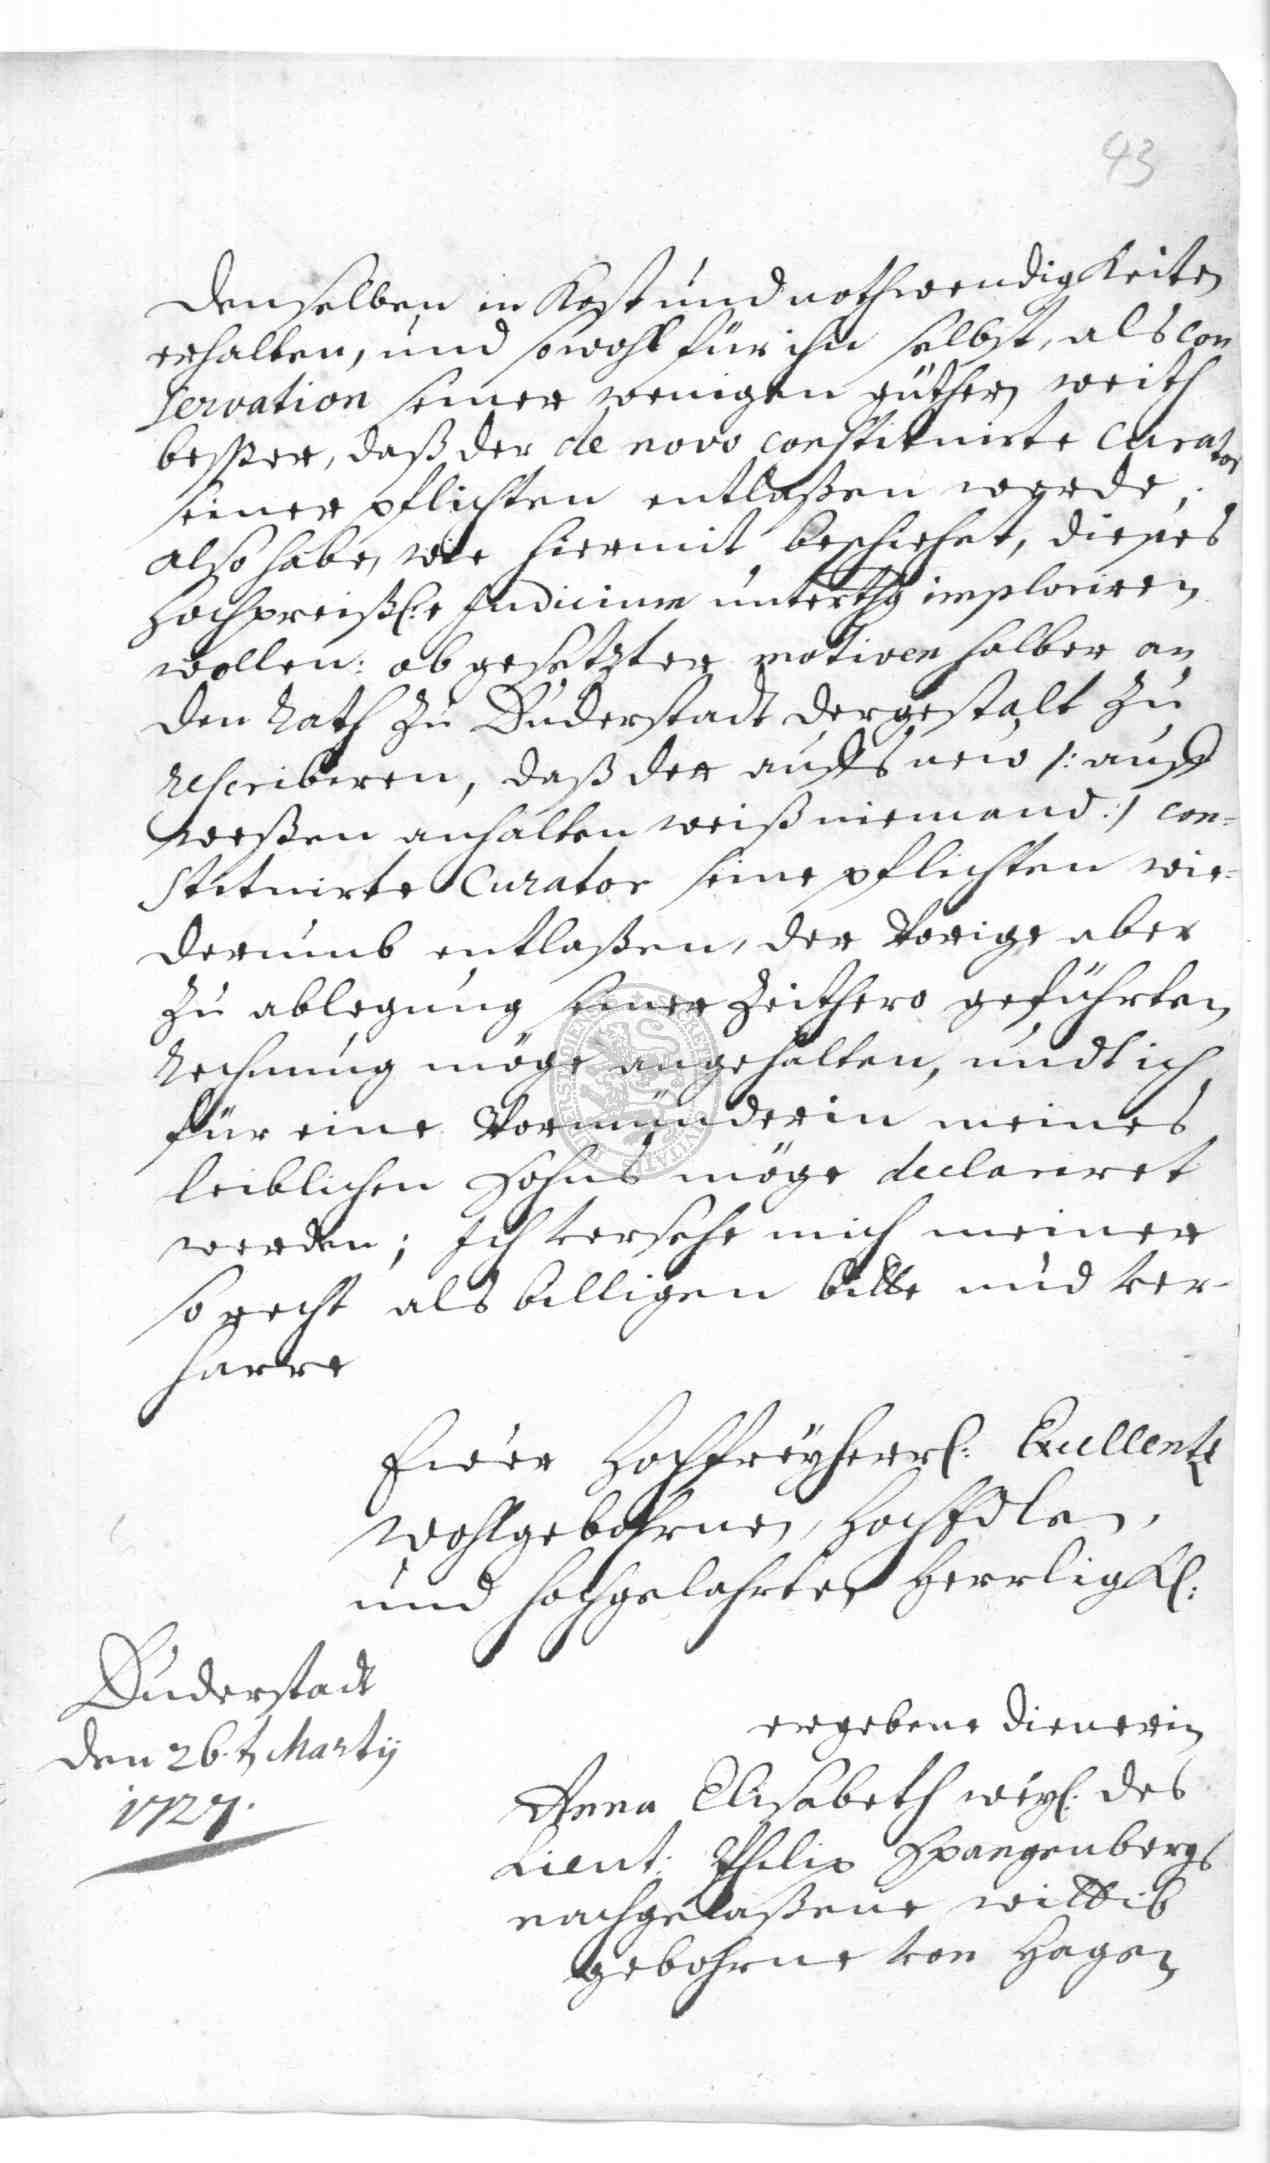 43
denselben in Kost und nothwendigkeiten
erhalten, und sowohl für ihn selbst, als con
servation seiner wenigen güthern weith
beßer, daß der de novo constituirte Curator
seiner pflichten entlaßen werde;
also habe, wie hiermit beschiehet, dieses
Hochpreißl:e Judicium unterthg imploriren
wollen: ob gesetzter motiven halber an
den Rath zu Duderstadt dergestalt zu
rescribiren, daß der auffs new /: auff
weßen anhalten weiß niemand :/ con=
stituirte Curator seine pflichten wie=
derumb entlaßen, der Vorige aber
zu ablegung seiner Zeithero geführten
Rechnung möge angehalten, undt ich
für eine Vormünderin meines
leiblichen Sohns möge declariret
werden; Ich versehe mich meiner
so recht als billigen bitte und ver-
harre
Ewer Hochfreyherrl: Excellentz
wohlgebohrnen, HochEdlen,
und hochgelahrten Herrligkl:
Duderstadt
den 26.t Martij
1727.
ergebene dienerin
Anna Elisabeth weyl: des
Lieut: Philip Spangenbergs
nachgelaßene wittib
gebohrne von Hagen